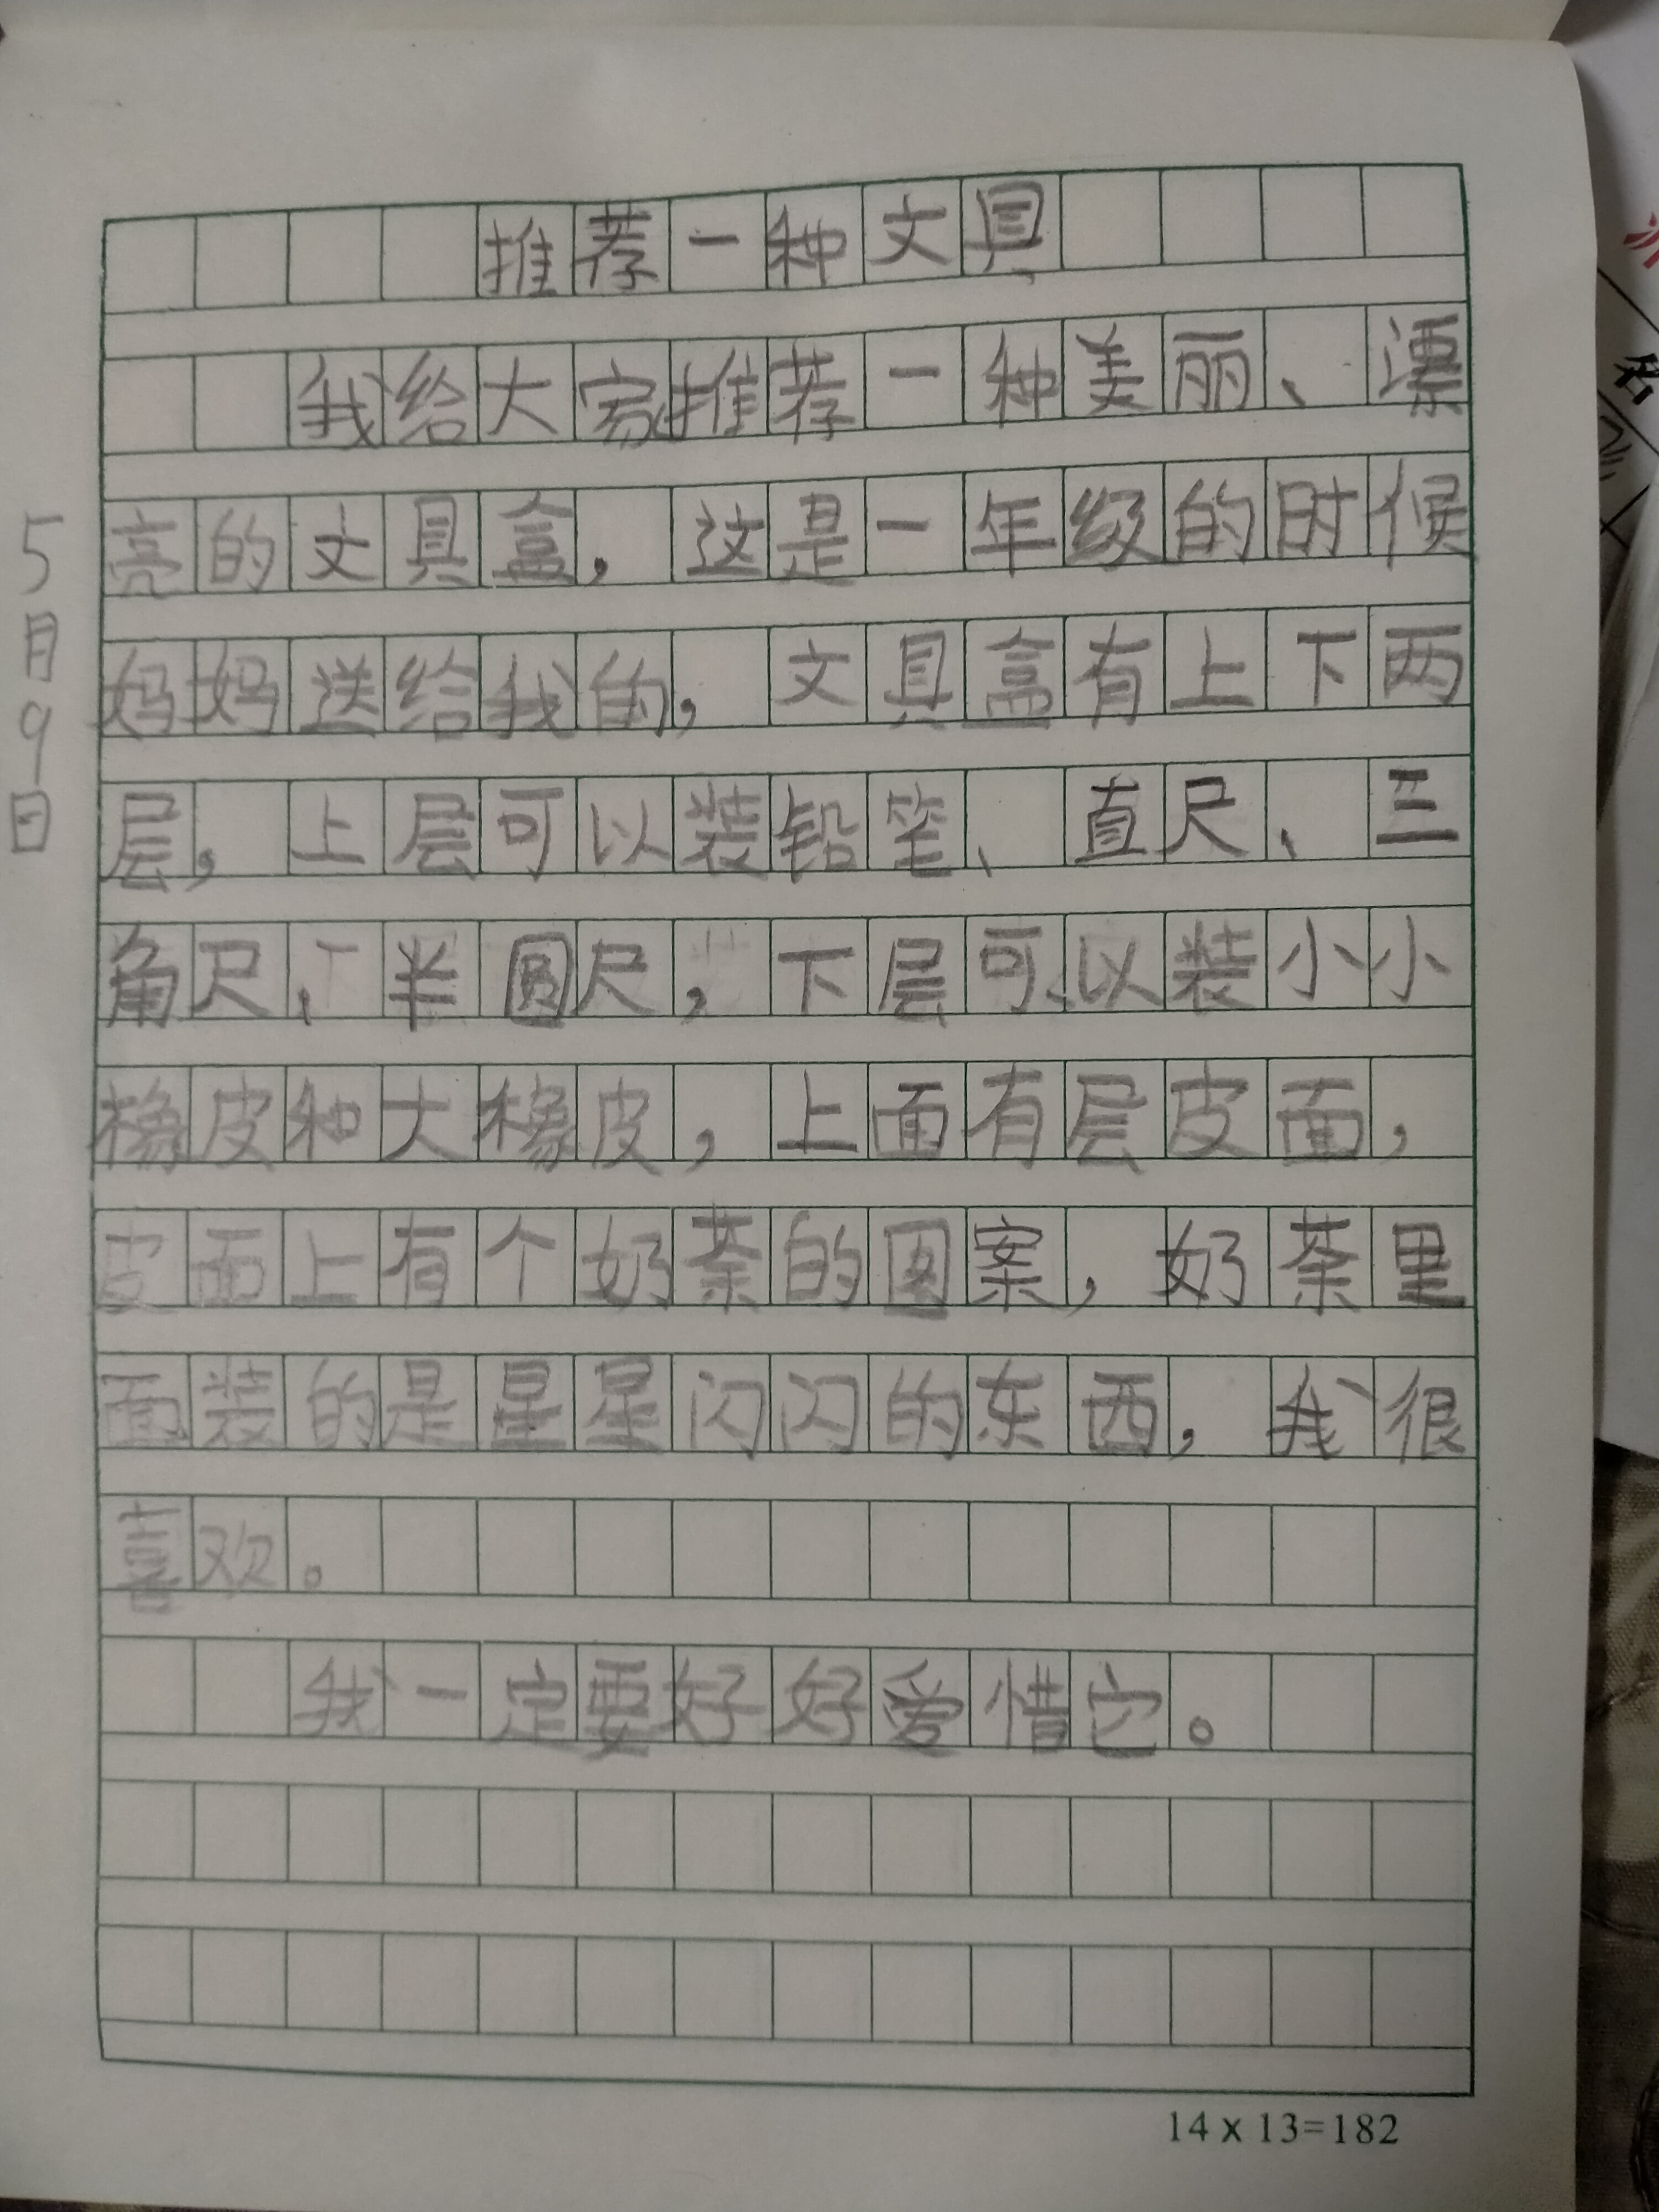 推荐一种文具
我给大家推荐一种美丽、漂
亮的文具盒，这是一年级的时候
妈妈送给我的，文具盒有上下两
层，上层可以装铅笔、直尺、三
角尺、半圆尺，下层可以装小小
橡皮和大橡皮，上面有层皮面，
皮面上有个奶茶的图案，奶茶里
面装的是星星闪闪的东西，我很
喜欢。
我一定要好好爱惜它。
5月9日
14×13=182
名